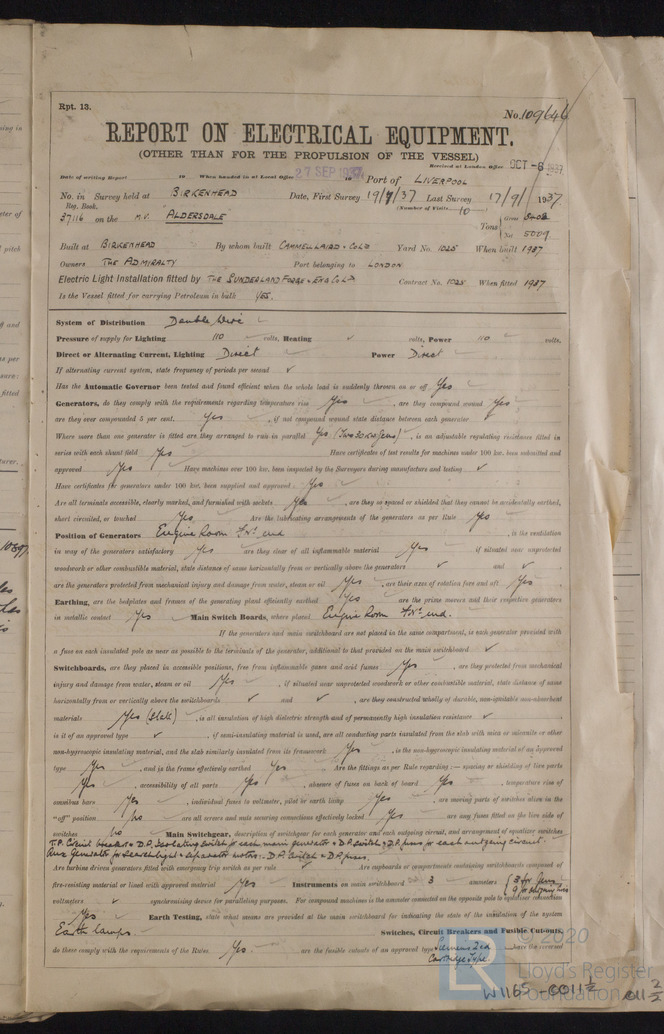 Rpt. 13.
No. 109646
REPORT ON ELECTRICAL EQUIPMENT.
(OTHER THAN FOR THE PROPULSION OF THE VESSEL)
Received at London Office OCT -6 1937
Date of writing Report 19 When handed in at Local Office 27 SEP 1937 19 Port of LIVERPOOL
No. in Survey held at BIRKENHEAD Date, First Survey 19/7/37 Last Survey 17/9/ 1937
Reg. Book. (Number of Visits 10)
37116 on the M.V. ALDERSDALE Tons Gross 8402
Net 5009
Built at BIRKENHEAD By whom built CAMMELLAIRD & COLD Yard No. 1025 When built 1937
Owners THE ADMIRALTY Port belonging to LONDON
Electric Light Installation fitted by THE SUNDERLAND FORGE & ENG COLD Contract No. 1025 When fitted 1937
Is the Vessel fitted for carrying Petroleum in bulk YES.
System of Distribution Double Wire
Pressure of supply for Lighting 110 volts, Heating ✓ volts, Power 110 volts.
Direct or Alternating Current, Lighting Direct Power Direct
If alternating current system, state frequency of periods per second ✓
Has the Automatic Governor been tested and found efficient when the whole load is suddenly thrown on or off Yes
Generators, do they comply with the requirements regarding temperature rise Yes, are they compound wound Yes
are they over compounded 5 per cent. Yes, if not compound wound state distance between each generator
Where more than one generator is fitted are they arranged to run in parallel Yes (Two 30 KW Gens), is an adjustable regulating resistance fitted in
series with each shunt field Yes Have certificates of test results for machines under 100 kw. been submitted and
approved Yes Have machines over 100 kw. been inspected by the Surveyors during manufacture and testing ✓
Have certificates for generators under 100 kw. been supplied and approved Yes
Are all terminals accessible, clearly marked, and furnished with sockets Yes, are they so spaced or shielded that they cannot be accidentally earthed,
short circuited, or touched Yes Are the lubricating arrangements of the generators as per Rule Yes
Position of Generators Engine Room For'd end, is the ventilation
in way of the generators satisfactory Yes are they clear of all inflammable material Yes if situated near unprotected
woodwork or other combustible material, state distance of same horizontally from or vertically above the generators ✓ and ✓
are the generators protected from mechanical injury and damage from water, steam or oil Yes, are their axes of rotation fore and aft Yes
Earthing, are the bedplates and frames of the generating plant efficiently earthed Yes are the prime movers and their respective generators
in metallic contact Yes Main Switch Boards, where placed Engine Room For'd end.
If the generators and main switchboard are not placed in the same compartment, is each generator provided with
a fuse on each insulated pole as near as possible to the terminals of the generator, additional to that provided on the main switchboard ✓
Switchboards, are they placed in accessible positions, free from inflammable gases and acid fumes Yes, are they protected from mechanical
injury and damage from water, steam or oil Yes, if situated near unprotected woodwork or other combustible material, state distance of same
horizontally from or vertically above the switchboards ✓ and ✓, are they constructed wholly of durable, non-ignitable non-absorbent
materials Yes (slate), is all insulation of high dielectric strength and of permanently high insulation resistance ✓
is it of an approved type ✓, if semi-insulating material is used, are all conducting parts insulated from the slab with mica or micanite or other
non-hygroscopic insulating material, and the slab similarly insulated from its framework Yes, is the non-hygroscopic insulating material of an approved
type Yes, and is the frame effectively earthed Yes Are the fittings as per Rule regarding :— spacing or shielding of live parts
Yes, accessibility of all parts Yes, absence of fuses on back of board Yes, temperature rise of
omnibus bars Yes, individual fuses to voltmeter, pilot or earth lamp Yes, are moving parts of switches alive in the
"off" position No are all screws and nuts securing connections effectively locked Yes are any fuses fitted on the live side of
switches No Main Switchgear, description of switchgear for each generator and each outgoing circuit, and arrangement of equalizer switches
T.P. Circuit breaker & D.P. Isolating switch for each main generator & D.P. switch & D.P. fuses for each outgoing circuit.
Aux Generator for Searchlight & separator motors:- D.P. Switch & D.P. fuses.
Are turbine driven generators fitted with emergency trip switch as per rule Are cupboards or compartments containing switchboards composed of
fire-resisting material or lined with approved material Yes Instruments on main switchboard 3 ammeters (3 for Gens
voltmeters ✓ synchronising device for paralleling purposes. For compound machines is the ammeter connected on the opposite pole to equaliser connection
Yes Earth Testing, state what means are provided at the main switchboard for indicating the state of the insulation of the system
Earth lamps. Switches, Circuit Breakers and Fusible Cut-outs,
do these comply with the requirements of the Rules. Yes. are the fusible cutouts of an approved type Siemens Zed
Cartridge Type
© 2020
LR
Lloyd's Register
Foundation
W1165-0011 1/2